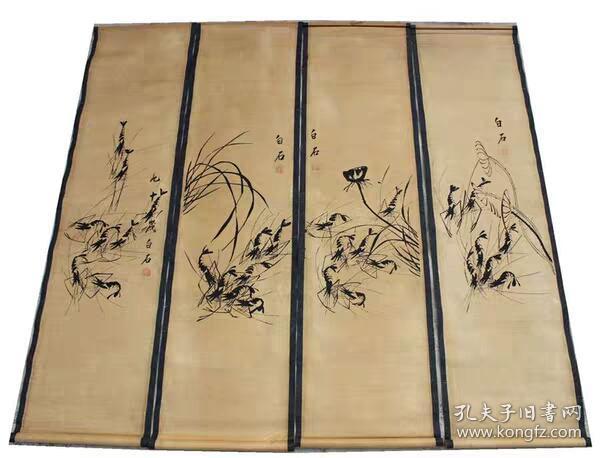 九十八歲白石
白石
白石
白石
孔夫子旧书网
www.kongfz.com